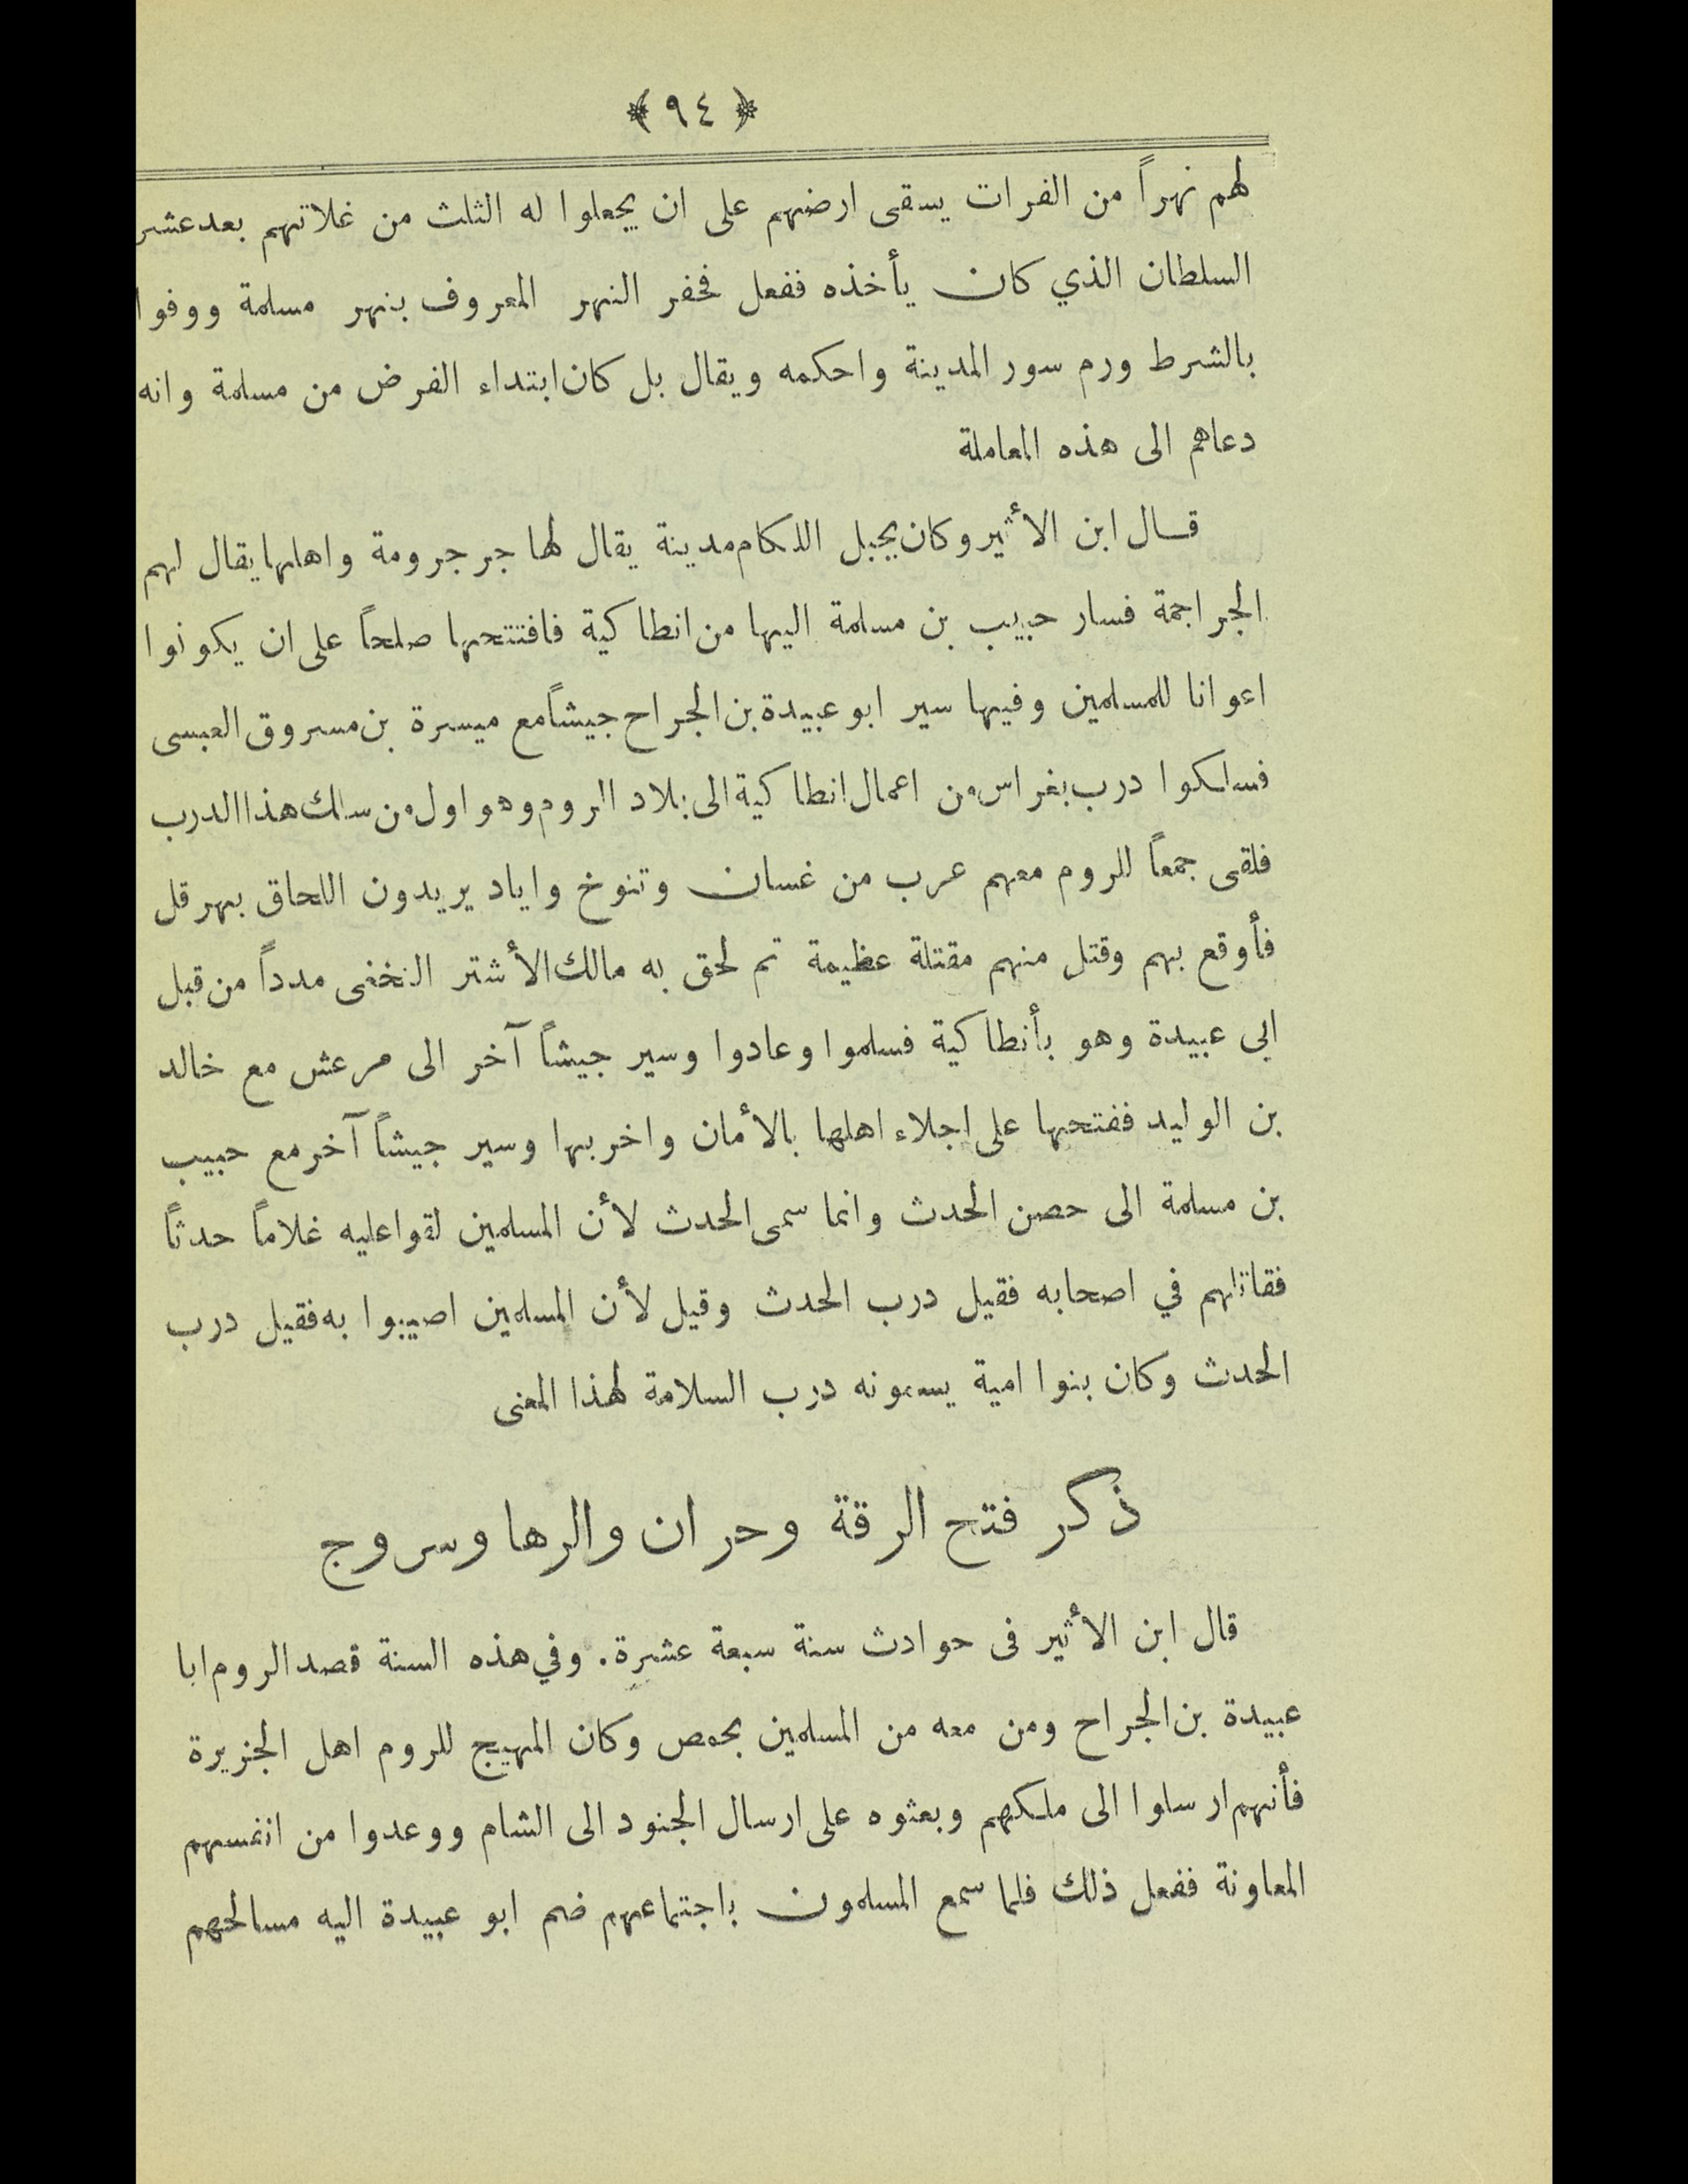 ﴿ ٩٤ ﴾
لهم نهراً من الفرات يسقى ارضهم على ان يجعلوا له الثلث من غلاتهم بعد عشر
السلطان الذي كان يأخذه ففعل فحفر النهر المعروف بنهر مسلمة ووفوا
بالشرط ورم سور المدينة واحكمه ويقال بل كان ابتداء الفرض من مسلمة وانه
دعاهم الى هذه المعاملة
قال ابن الأثير وكان بجبل اللكام مدينة يقال لها جرجرومة واهلها يقال لهم
الجراجمة فسار حبيب بن مسلمة اليها من انطاكية فافتتحها صلحاً على ان يكونوا
اعوانا للمسلمين وفيها سير ابو عبيدة بن الجراح جيشاً مع ميسرة بن مسروق العبسى
فسلكوا درب بغراس من اعمال انطاكية الى بلاد الروم وهو اول من سلك هذا الدرب
فلقى جمعاً للروم معهم عرب من غسان وتنوخ واياد يريدون اللحاق بهرقل
فأوقع بهم وقتل منهم مقتلة عظيمة ثم لحق به مالك الأشتر النخعى مدداً من قبل
ابى عبيدة وهو بأنطاكية فسلموا وعادوا وسير جيشاً آخر الى مرعش مع خالد
بن الوليد ففتحها على اجلاء اهلها بالأمان واخربها وسير جيشاً آخر مع حبيب
بن مسلمة الى حصن الحدث وانما سمى الحدث لأن المسلمين لقوا عليه غلاماً حدثاً
فقاتلهم في اصحابه فقيل درب الحدث وقيل لأن المسلمين اصيبوا به فقيل درب
الحدث وكان بنوا امية يسمونه درب السلامة لهذا المعنى
ذكر فتح الرقة وحران والرها وسروج
قال ابن الأثير فى حوادث سنة سبعة عشرة. وفي هذه السنة قصد الروم ابا
عبيدة بن الجراح ومن معه من المسلمين بحمص وكان المهيج للروم اهل الجزيرة
فأنهم ارسلوا الى ملكهم وبعثوه على ارسال الجنود الى الشام ووعدوا من انفسهم
المعاونة ففعل ذلك فلما سمع المسلمون باجتماعهم ضم ابو عبيدة اليه مسالحهم